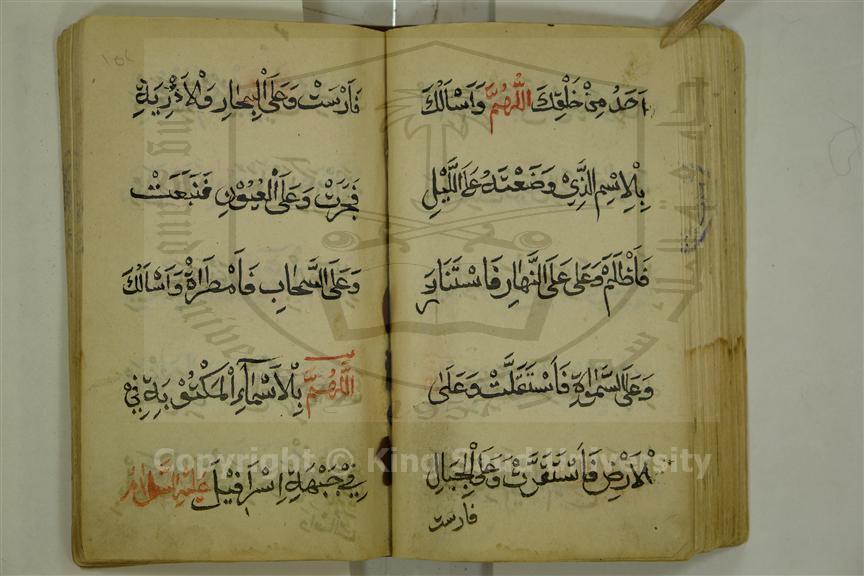 اَحَدٌ مِنْ خَلْقِكَ اَللّٰهُمَّ وَاَسْأَلُكَ
بِالْاِسْمِ الَّذِيْ وَضَعْتَهُ عَلَى اللَّيْلِ
فَاَظْلَمَ وَعَلى عَلَى النَّهَارِ فَاسْتَنَارَ
وَعَلَى السَّمٰوَاةِ فَاَسْتَقَلَّتْ وَعَلَى
الْاَرْضِ فَاَسْتَقَرَّتْ وَعَلَى الْجِبَالِ
فارست
فَاَرْسَتْ وَعَلَى الْبِحَارِ وَلْاَوْدِيَةِ
فَجَرَتْ وَعَلَى الْعُيُوْنِ فَنَبَعَتْ
وَعَلَى السَّحَابِ فَاَمْطَرَاةْ وَاَسْأَلُكَ
اَللّٰهُمَّ بِالْاَسْمَآءِ الْمَكْتُوْبَةِ فِيْ
فِيْ جَبْهَةِ اِسْرَافِيْلَ عَلَيْهِ السَّلَامُ
Copyright © King Saud University